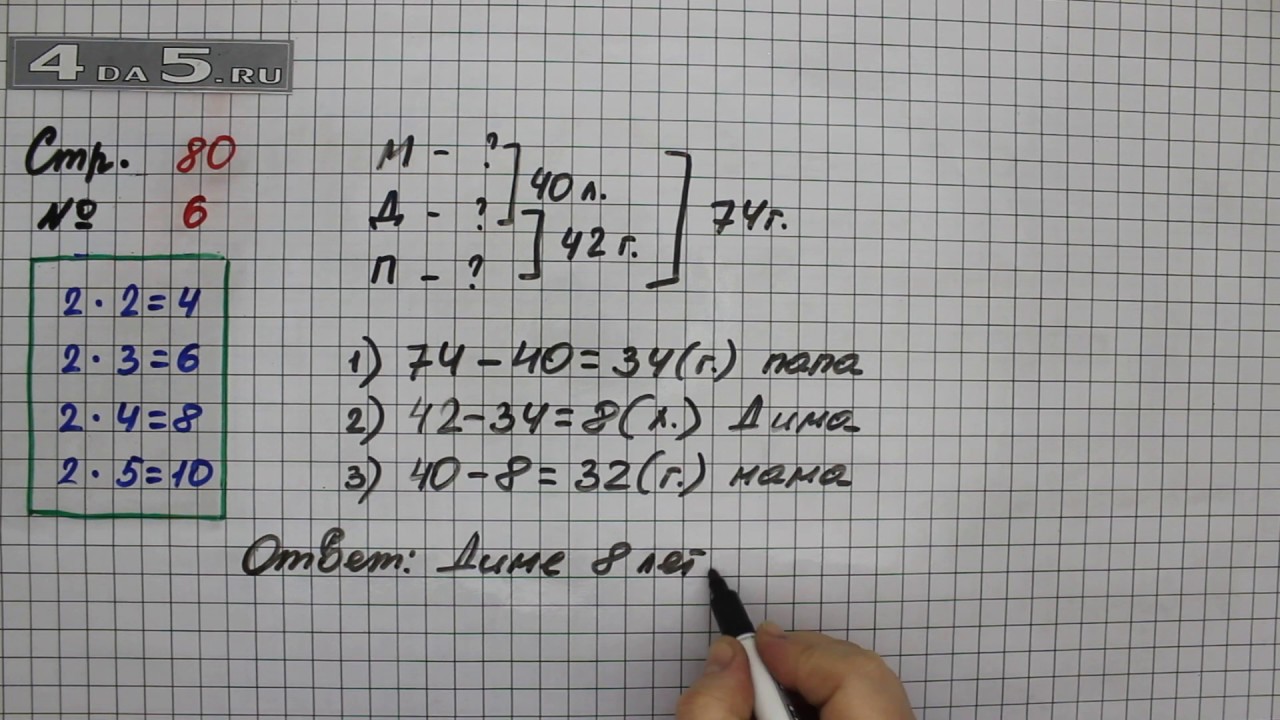 4DA5.RU
Стр. 80
№ 6
2 · 2 = 4
2 · 3 = 6
2 · 4 = 8
2 · 5 = 10
М - ?
Д - ?
П - ?
40 л.
42 г.
74 г.
1) 74 - 40 = 34 (г.) папа
2) 42 - 34 = 8 (л.) Дима
3) 40 - 8 = 32 (г.) мама
Ответ: Диме 8 лет